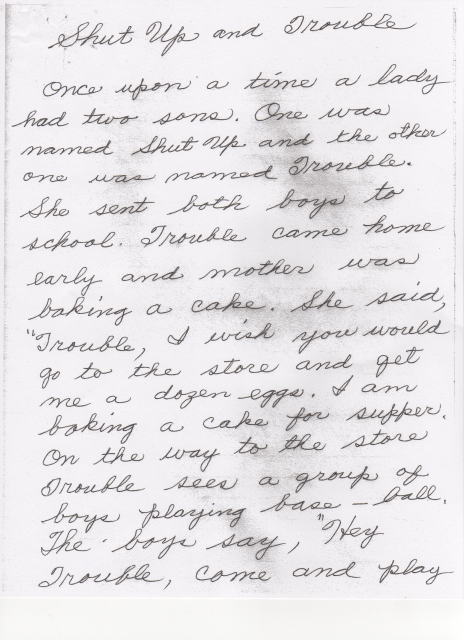 Shut Up and Trouble
Once upon a time a lady
had two sons. One was
named Shut Up and the other
one was named Trouble.
She sent both boys to
school. Trouble came home
early and mother was
baking a cake. She said,
"Trouble, I wish you would
go to the store and get
me a dozen eggs. I am
baking a cake for supper.
On the way to the store
Trouble sees a group of
boys playing base-ball.
The boys say, "Hey
Trouble, come and play